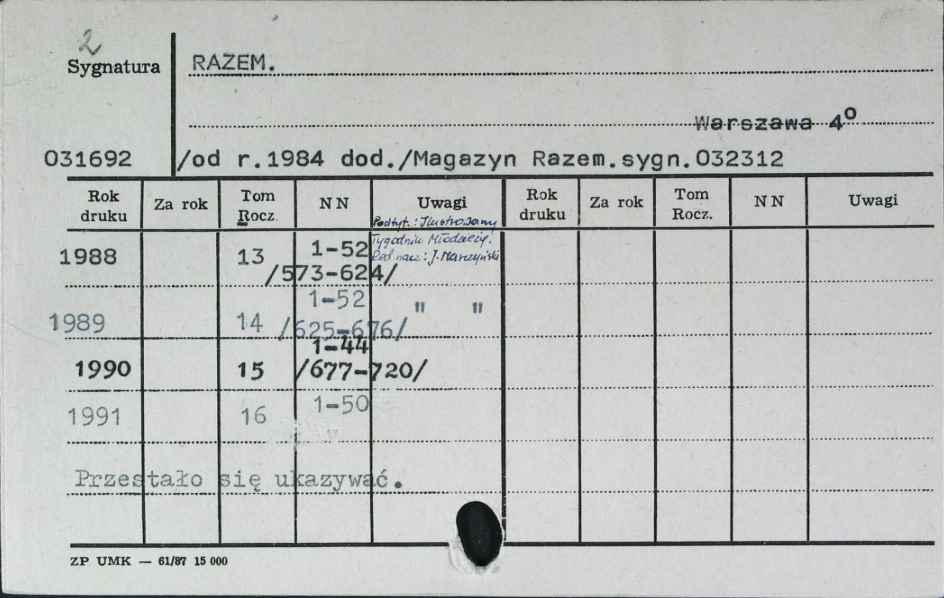 2
Sygnatura RAZEM.
Warszawa 4º
031692 /od r.1984 dod./Magazyn Razem.sygn.032312
Rok druku Za rok Tom Rocz. N N Uwagi Rok druku Za rok Tom Rocz. N N Uwagi
Podtyt.: Ilustrowany
Tygodnik Młodzieży.
Red. nacz.: J. Marszyński
1988 13 1-52
/573-624/
1989 14 1-52 " "
/625-676/
1990 15 1-44
/677-720/
1991 16 1-50
Przestało się ukazywać.
ZP UMK — 61/87 15 000